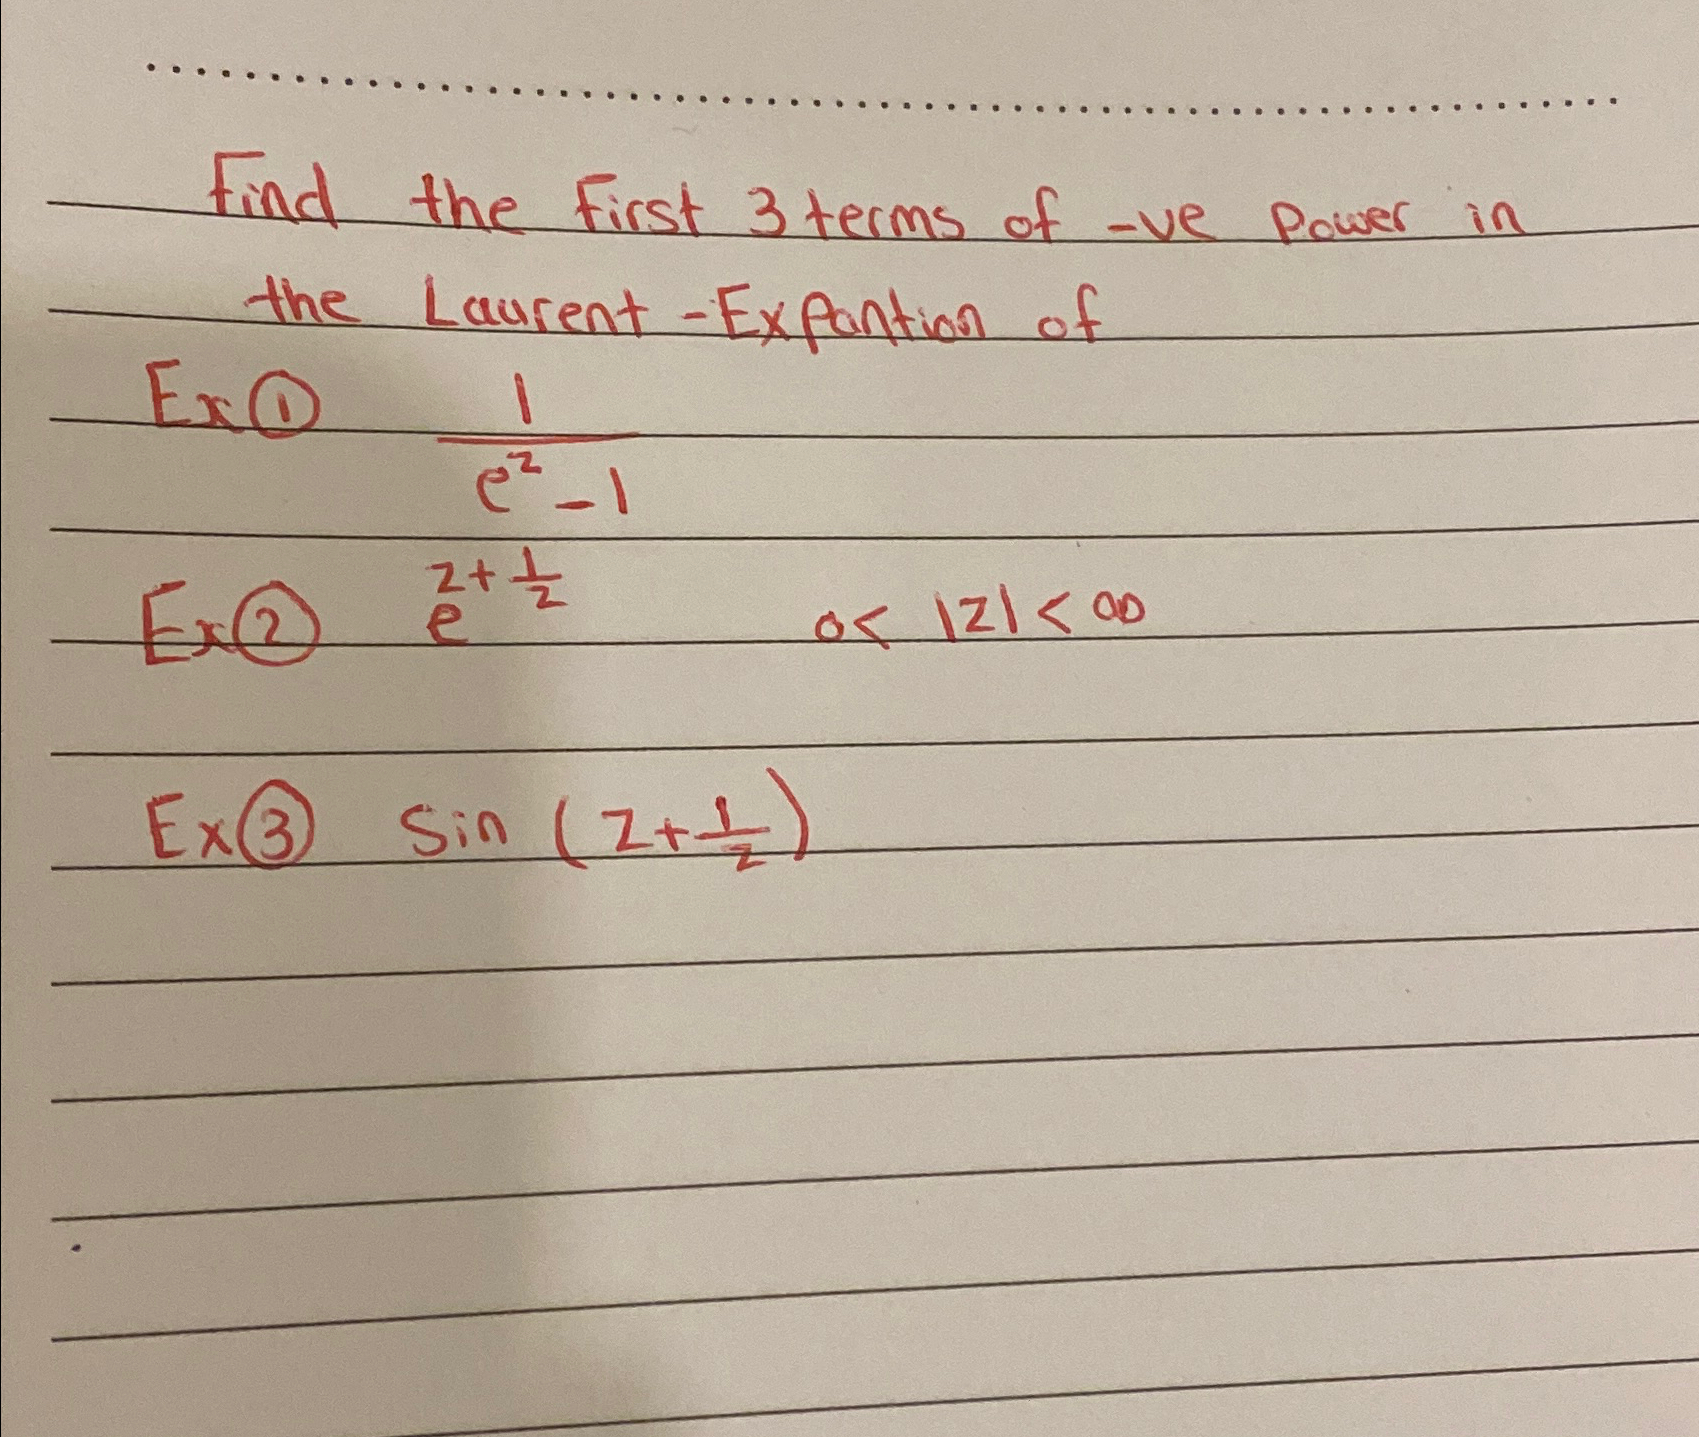 Find the First 3 terms of -ve Power in
the Laurent-Expantion of
Ex① 1/(e^z - 1)
Ex② e^(z + 1/z) 0< |z| < ∞
Ex③ Sin (z + 1/z)